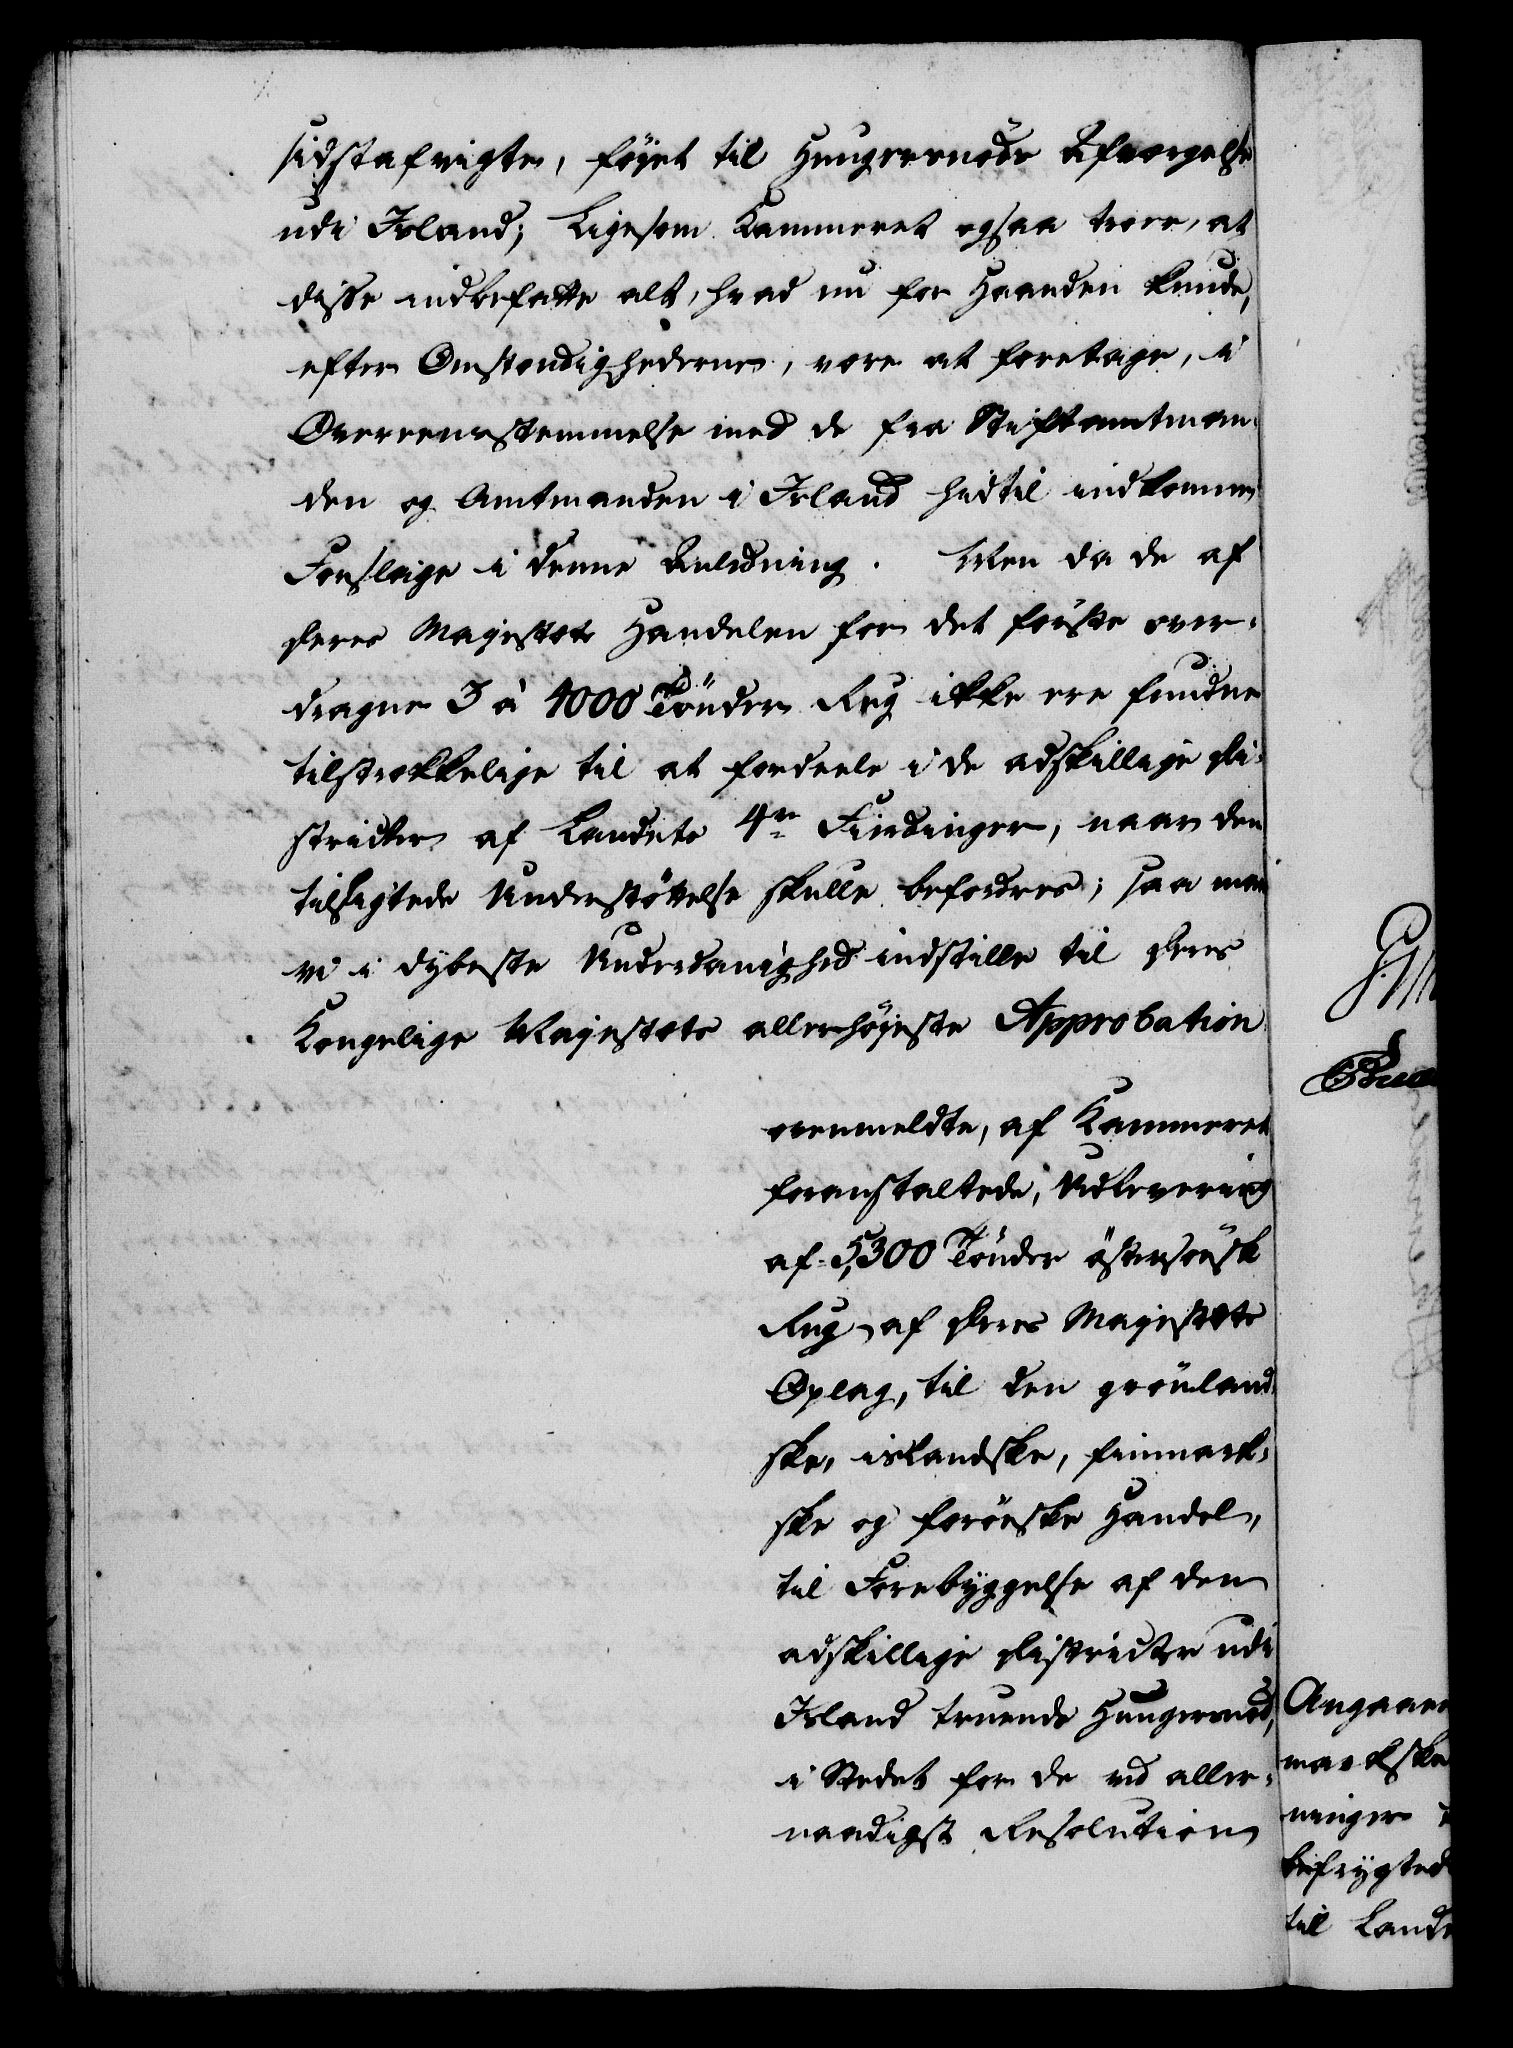 sidstafvigte, föjet til Hungersnöds Afværgelse
udi Island; Ligesom Kammeret ogsaa troer, at
disse indbefatte alt, hvad nu for Haanden kunde,
efter Omstændighederne, være at foretage, i
Overeensstemmelse med de fra Stiftamtman-
den og Amtmanden i Island hidtil indkomne
Forslage i denne Anledning. Men da de af
Deres Majestæts Handelen for det förste over-
dragne 3 à 4000 Tönder Rug ikke ere fundne
tilstrækkelige til at fordeele i de adskillige Di-
stricter af Landets 4re Fierdinger, naar den
tilsigtede Understöttelse skulle befordres; saa maae
vi i dybeste Underdanighed indstille til Deres
Kongelige Majestæts allerhöjeste Approbation
ovenmeldte, af Kammeret
foranstaltede, Udlevering
af 5,300 Tönder östersöisk
Rug af Deres Majestæts
Oplag, til den grönland-
ske, islandske, finmark-
ske og færöeske Handel,
til Forebyggelse af den
adskillige Districter udi
Island truende Hungersnöd,
i Stedet for de ved aller-
naadigst Resolution
Angaaen
markske
ninger
befrygted
til Lande